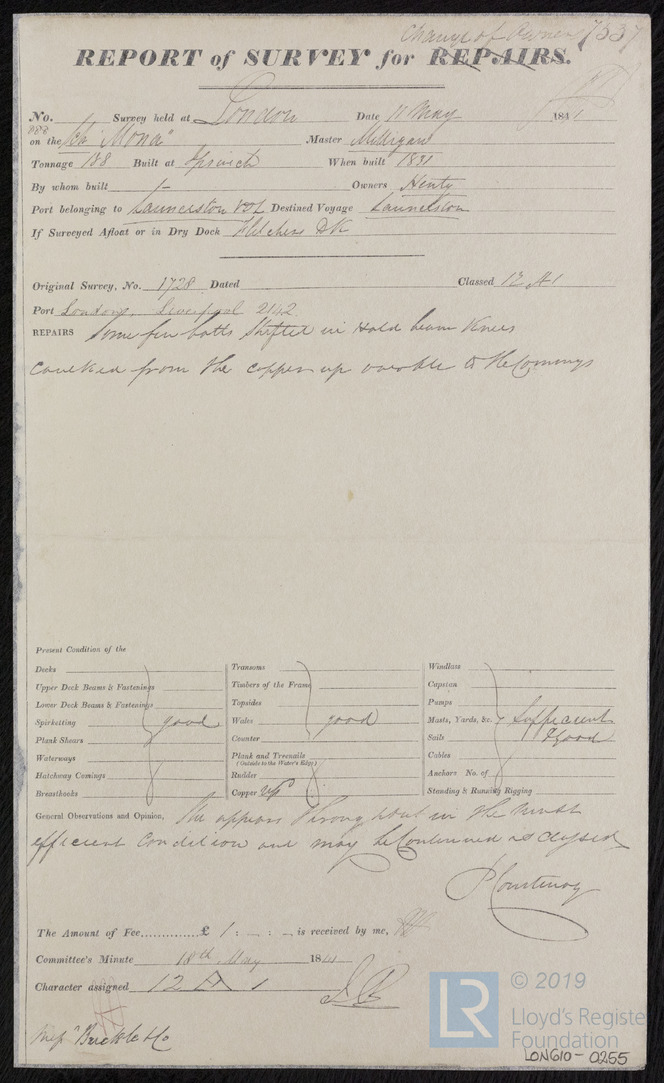 Change of Owner 7337
REPORT of SURVEY for REPAIRS.
No. Survey held at London Date, 11 May 1841
on the Sch "Mona" Master Milligan
Tonnage 188 Built at Ipswich When built 1831
By whom built Owners Henty
Port belonging to Launceston VDL Destined Voyage Launceston
If Surveyed Afloat or in Dry Dock Fletchers DK
Original Survey, No. 1728 Dated Classed 12 A1
Port London, Liverpool 2142
REPAIRS Some few bolts shifted in Hold beam Knees
caulked from the copper up to the Comings
Present Condition of the
Decks Transoms Windlass
Upper Deck Beams & Fastenings Timbers of the Frame Capstan
Lower Deck Beams & Fastenings Topsides Pumps
Spirketting good Wales good Masts, Yards, &c. Sufficient
Plank Shears Counter Sails & good
Waterways Plank and Treenails Cables
(Outside to the Water's Edge)
Hatchway Comings Rudder Anchors No. of
Breasthooks Copper Standing & Running Rigging
General Observations and Opinion, She appears throughout in the most
efficient Condition and may be Continued as Classed
P Courtenay
The Amount of Fee............£ 1 : — : — is received by me,
Committee's Minute 18th May 1841
Character assigned 12 A 1
Messrs Buckle & Co
LR
© 2019
Lloyd's Register
Foundation
LON610-0255